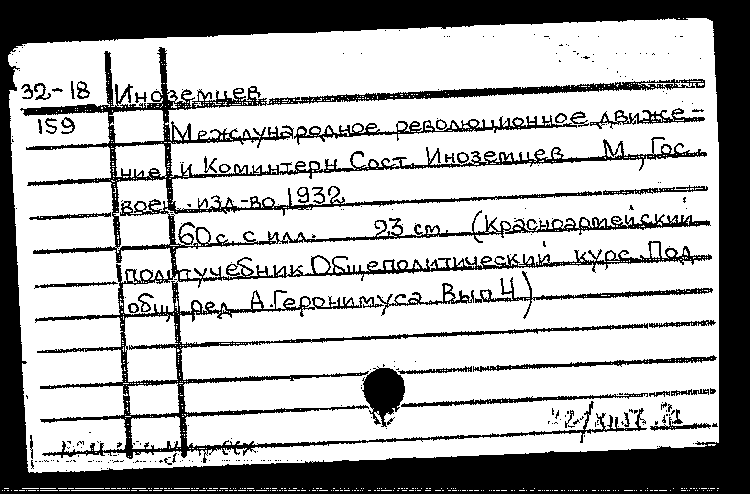 32-18 Иноземцев
159 Международное революционное движе-
ние и Коминтерн Сост. Иноземцев М., Гос.
воен. изд-во, 1932
60 с. с илл. 23 см. (Красноармейский
политучебник Общеполитический курс. Под
общ. ред А.Геронимуса Вып 4)